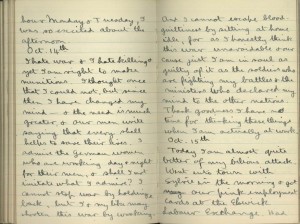 hours Monday & Tuesday, I
was so excited about the
afternoon
Oct. 14th
I hate war & I hate killing &
yet I am ready to make
munitions. I thought once
that I could not, but since
then I have changed my
mind - & the need is much
greater & our men write
saying that every shell
helps to save their lives. I
admire the German women
who are working day & night
for their men, & shall I not
imitate what I admire? I
cannot stop war by holding
back, but I so may
shorten this war by working.
And I cannot escape blood-
guiltiness by sitting at home
idly, for as I honestly think
this war unavoidable & our
cause just I am in soul as
guilty of it as the soldiers who
are fighting my battles & the
ministers who declared my
mind to the other nations.
Thank goodness I have no
time for thinking these things
when I am actually at work.
Oct. 15th
Today I am almost quite
better of my bilious attack
Went into town with
for the morning & got
our pink unemployment
Cards at the
Labour Exchange. Has